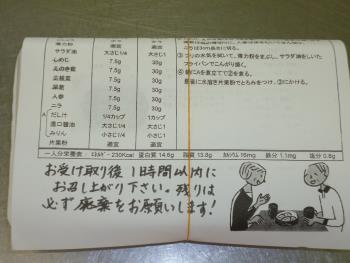 薄力粉 適宜 適宜
サラダ油 大さじ1/4 大さじ1
しめじ 7.5g 30g
えのき茸 7.5g 30g
7.5g 30g
7.5g 30g
人参 7.5g 30g
ニラ 7.5g 30g
A だし汁 1/4カップ 1カップ
濃口醤油 大さじ1/4 大さじ1
みりん 小さじ1/4 小さじ1
片栗粉 適宜 適宜
ニラは3cm長さに切る。
フライパンでこんがり焼く。
④ 皿にAを煮立てて②を煮る。
最後に水溶き片栗粉でとろみをつけ、③にかける。
一人分栄養表 エネルギー 230Kcal 蛋白質 14.6g 脂質 13.8g カルシウム 16mg 鉄分 1.1mg 塩分 0.8g
お受け取り後 1時間以内に
お召し上がり下さい。残りは
必ず廃棄をお願いします!